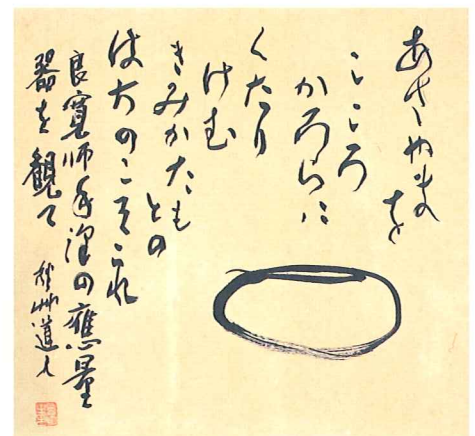 あさやま
を
こころ
かろらに
くたり
けむ
きみかたも
との
はちのこそこれ
良寛師手澤の應量
器を観て 秋艸道人